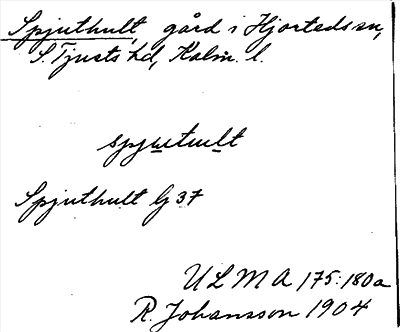 Spjuthult, gård i Hjorteds sn,
S. Tjusts hd, Kalm. l.
spjutult
Spjuthult Gj 37
ULMA 175:180a
R. Johansson 1904